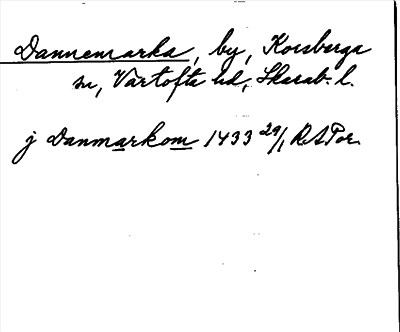 Dannemarka, by, Korsberga
sn, Vartofta hd, Skarab. l.
j Danmarkom 1433 29/1 RAPer.